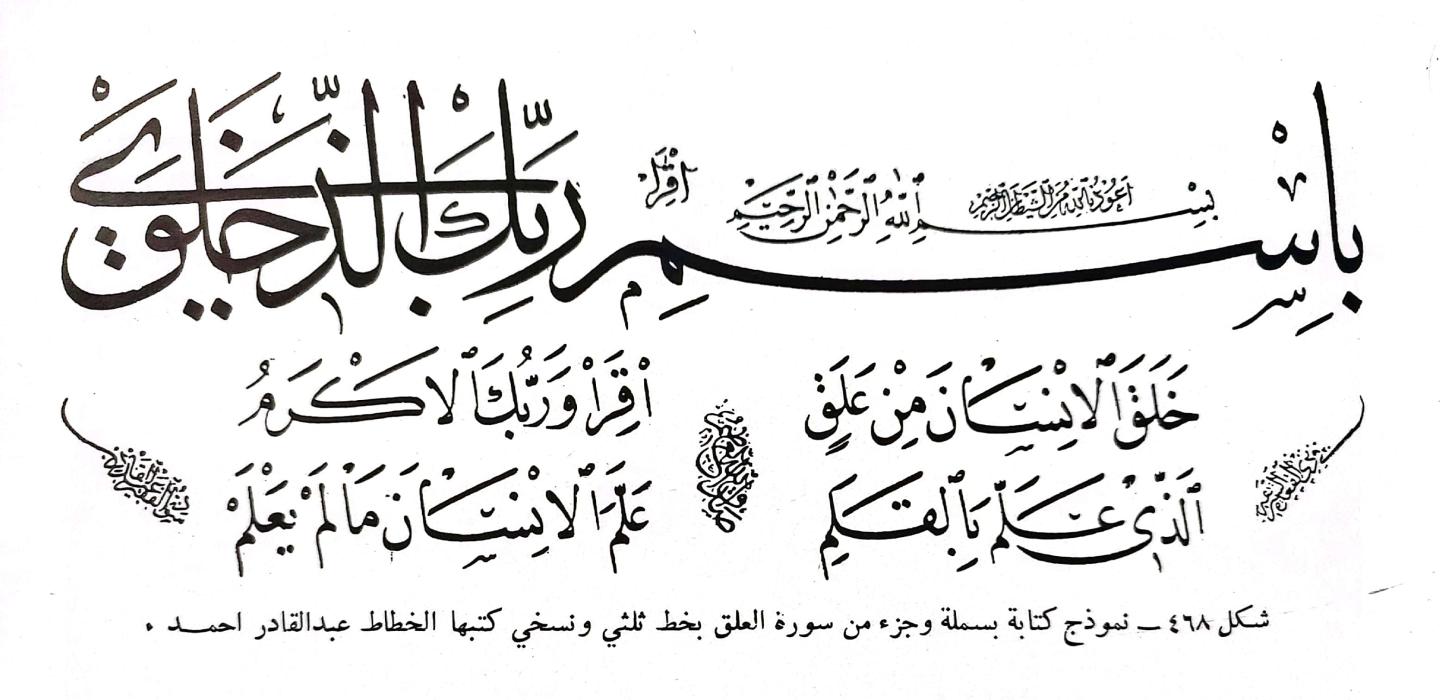 أعوذ بالله من الشيطان الرجيم
بِسْمِ اللهِ الرَّحْمٰنِ الرَّحِيْمِ
اقْرَأْ
بِاسْمِ رَبِّكَ الَّذِي خَلَقَ
خَلَقَ الْاِنْسَانَ مِنْ عَلَقٍ
اِقْرَأْ وَرَبُّكَ الْاَكْرَمُ
اَلَّذِي عَلَّمَ بِالْقَلَمِ
عَلَّمَ الْاِنْسَانَ مَا لَمْ يَعْلَمْ
شكل ٤٦٨ – نموذج كتابة بسملة وجزء من سورة العلق بخط ثلثي ونسخي كتبها الخطاط عبدالقادر احمد .